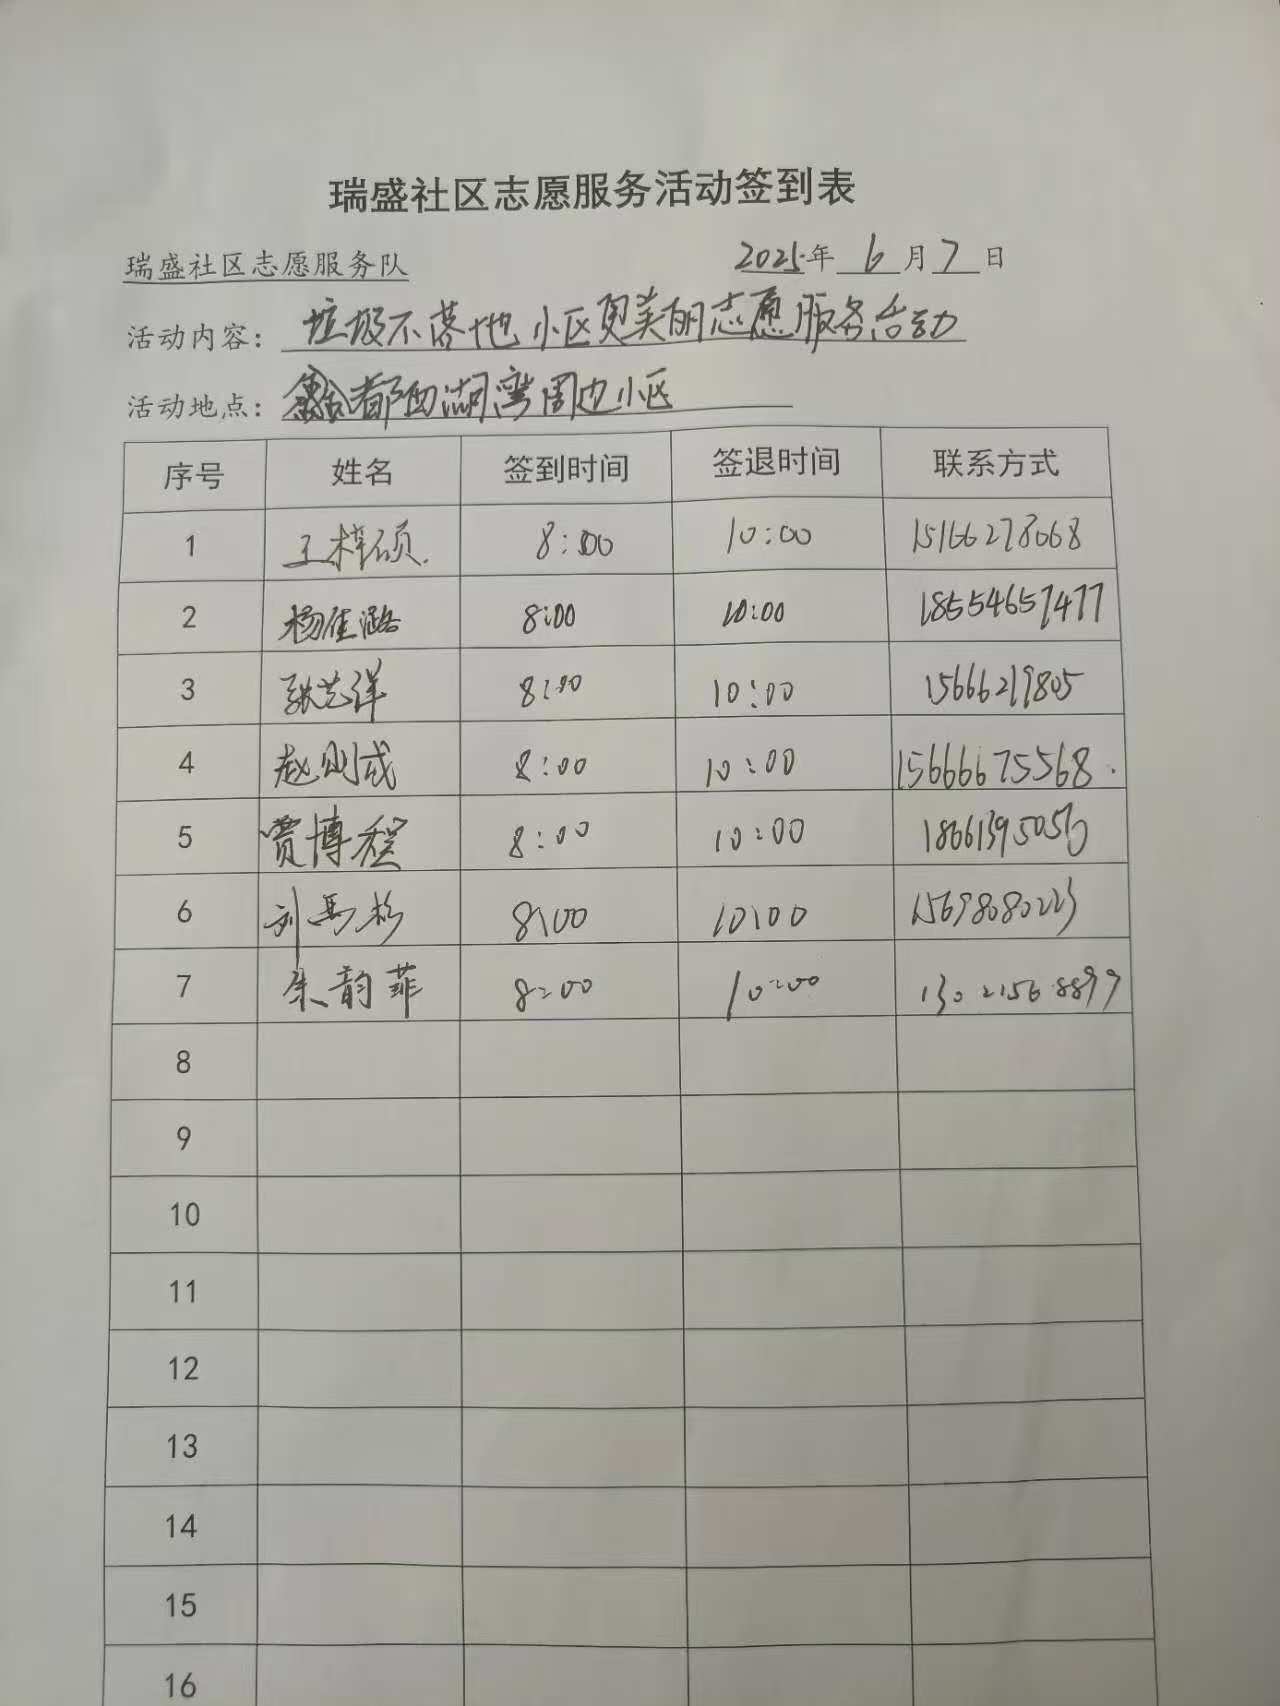 瑞盛社区志愿服务活动签到表
瑞盛社区志愿服务队 2025年6月7日
活动内容：垃圾不落地小区更美丽志愿服务活动
活动地点：鑫都西湖湾周边小区
序号 姓名 签到时间 签退时间 联系方式
1 王梓硕 8:00 10:00 15166278068
2 杨佳潞 8:00 10:00 18554657477
3 张艺洋 8:00 10:00 15666219805
4 赵则成 8:00 10:00 15666675568
5 贾博程 8:00 10:00
6 刘马杉 8:00 10:00 15698080223
7 朱韵菲 8:00 10:00 13021568899
8
9
10
11
12
13
14
15
16